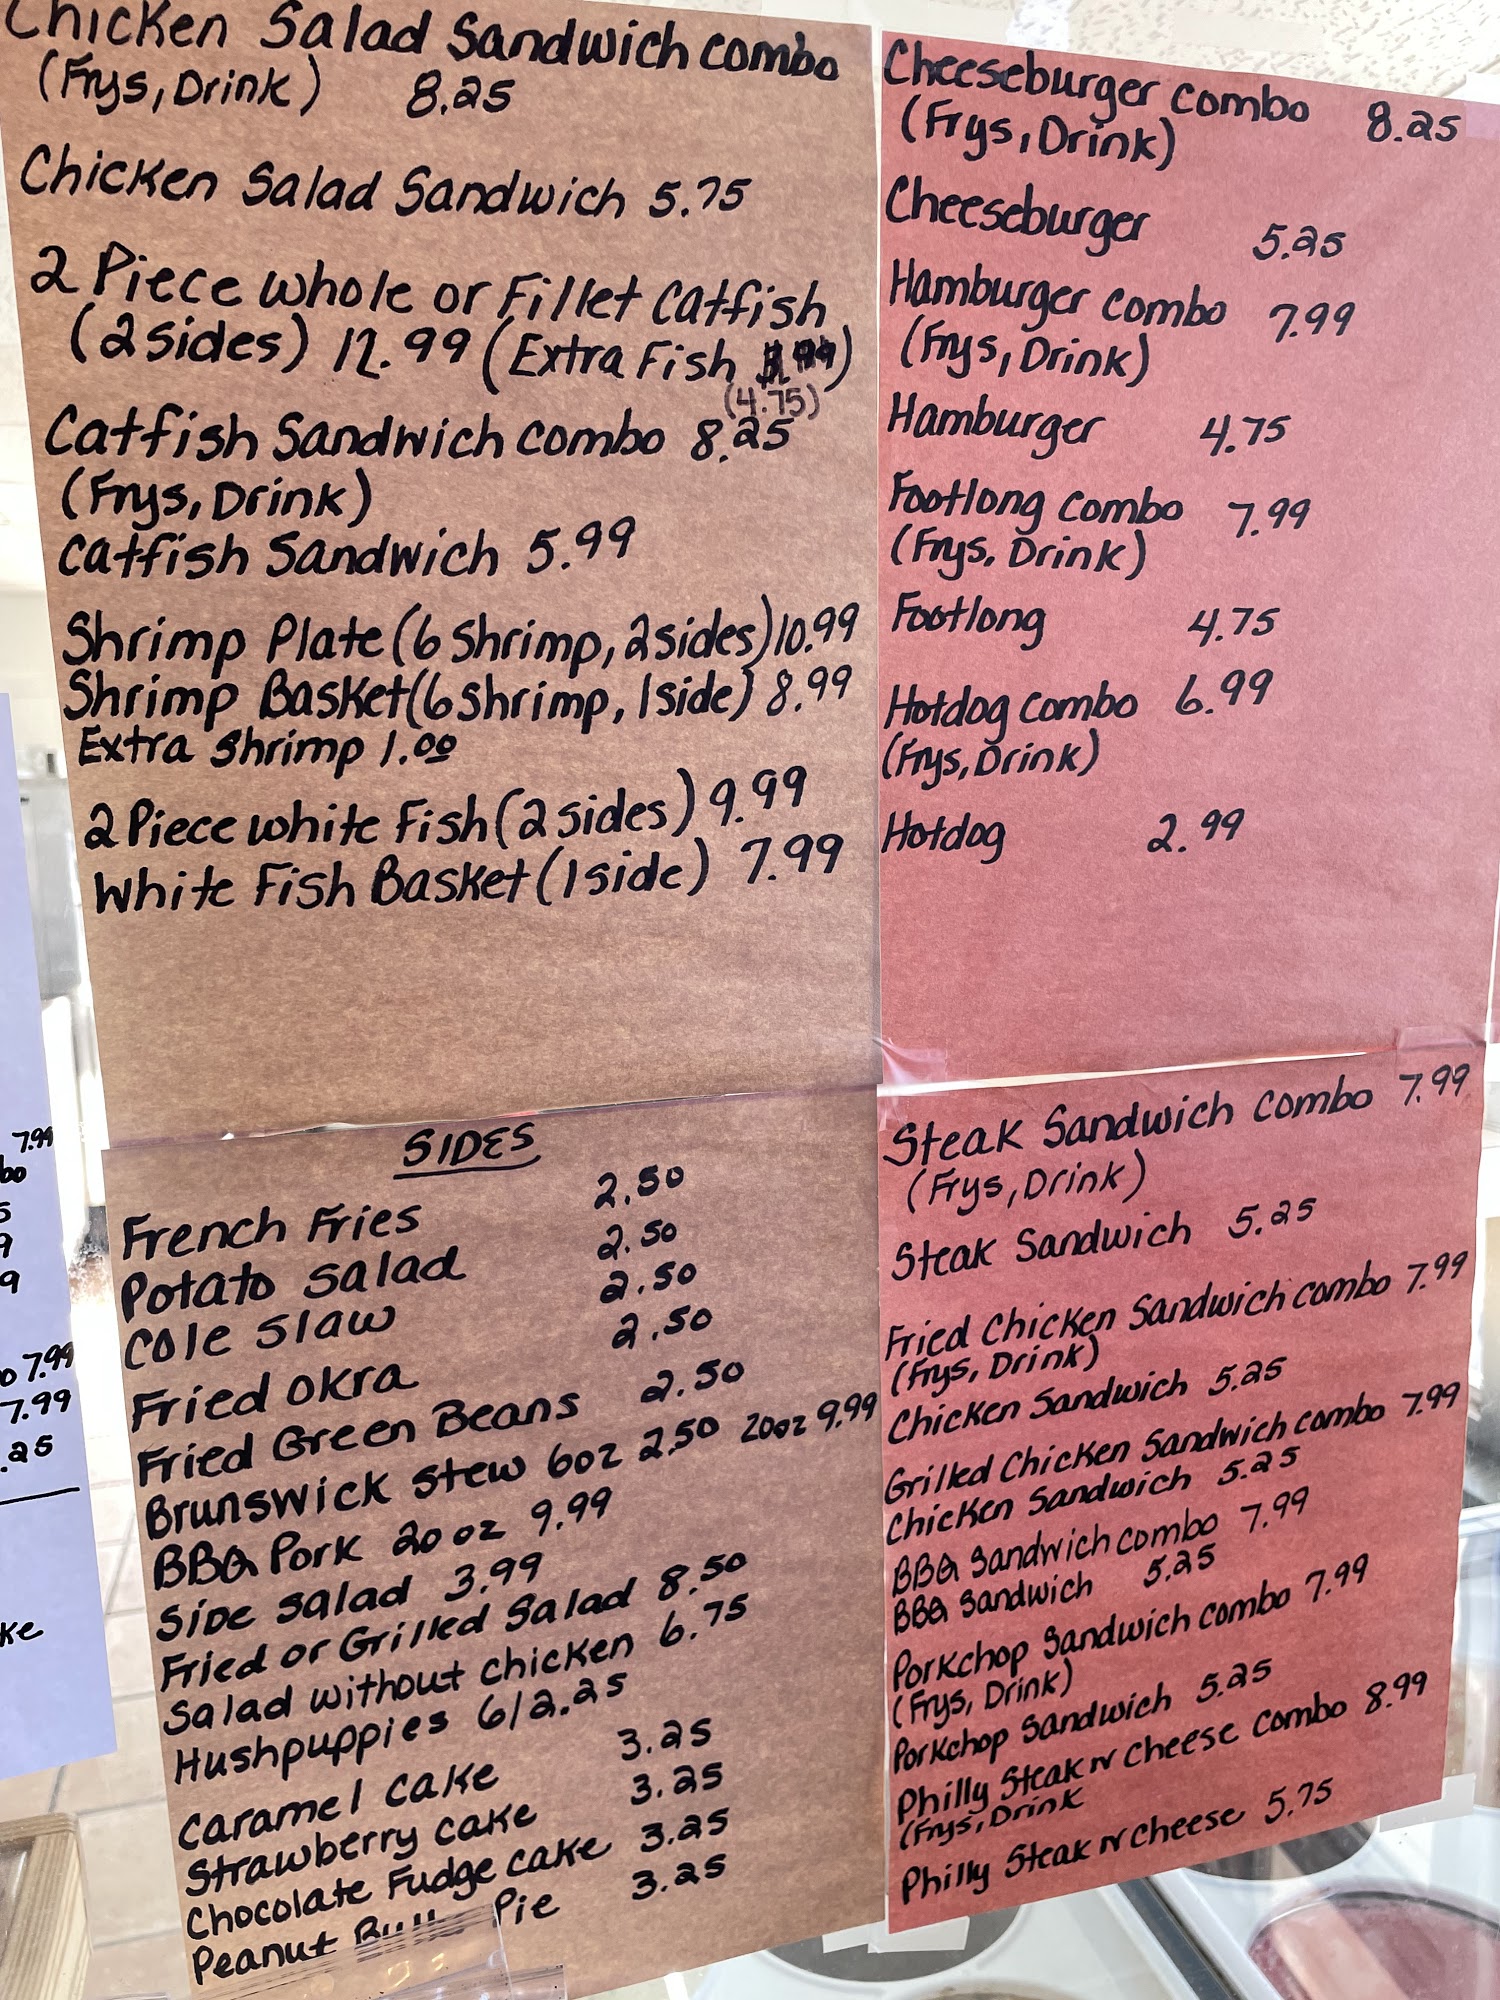 Chicken Salad Sandwich combo
(Frys, Drink) 8.25
Chicken Salad Sandwich 5.75
2 Piece whole or Fillet Catfish
(2 sides) 12.99 (Extra Fish
(4.75)
Catfish Sandwich combo 8.25
(Frys, Drink)
Catfish Sandwich 5.99
Shrimp Plate (6 shrimp, 2 sides) 10.99
Shrimp Basket (6 shrimp, 1 side) 8.99
Extra shrimp 1.00
2 Piece white Fish (2 sides) 9.99
White Fish Basket (1 side) 7.99
Cheeseburger combo 8.25
(Frys, Drink)
Cheeseburger 5.25
Hamburger combo 7.99
(Frys, Drink)
Hamburger 4.75
Footlong combo 7.99
(Frys. Drink)
Footlong 4.75
Hotdog combo 6.99
(Frys, Drink)
Hotdog 2.99
SIDES
French Fries 2.50
Potato salad 2.50
Cole slaw 2.50
Fried okra 2.50
Fried Green Beans 2.50
Brunswick stew 6oz 2.50 20oz 9.99
BBQ Pork 20 oz 9.99
Side salad 3.99
Fried or Grilled Salad 8.50
Salad without chicken 6.75
Hushpuppies 6/2.25
Caramel cake 3.25
Strawberry cake 3.25
Chocolate Fudge cake 3.25
Peanut Pie 3.25
Steak Sandwich combo 7.99
(Frys, Drink)
Steak Sandwich 5.25
Fried Chicken Sandwich combo 7.99
(Frys, Drink)
Chicken Sandwich 5.25
Grilled Chicken Sandwich combo 7.99
Chicken Sandwich 5.25
BBQ Sandwich combo 7.99
BBQ Sandwich 5.25
Porkchop Sandwich combo 7.99
(Frys, Drink)
Porkchop Sandwich 5.25
Philly Steak n cheese combo 8.99
(Frys, Drink
Philly Steak n cheese 5.75
7.99
7.99
7.99
.25